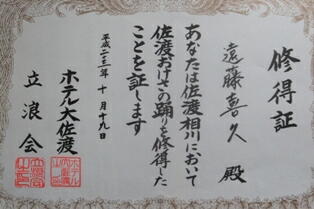 修得証
遠藤喜久 殿
あなたは佐渡相川において
佐渡おけさの踊りを修得した
ことを証します
平成二三年 十月 十九日
ホテル大佐渡
立浪会